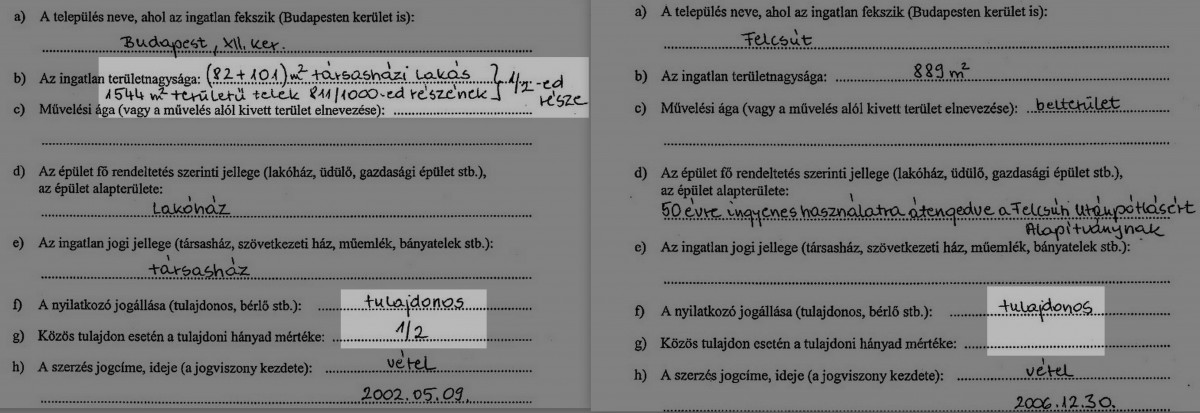 a) A település neve, ahol az ingatlan fekszik (Budapesten kerület is):
Budapest, XII. ker.
b) Az ingatlan területnagysága: (82+101) m² társasházi lakás
1544 m² területű telek 811/1000-ed részének } 1/2-ed része
c) Művelési ága (vagy a művelés alól kivett terület elnevezése):
d) Az épület fő rendeltetés szerinti jellege (lakóház, üdülő, gazdasági épület stb.),
az épület alapterülete:
Lakóház
e) Az ingatlan jogi jellege (társasház, szövetkezeti ház, műemlék, bányatelek stb.):
társasház
f) A nyilatkozó jogállása (tulajdonos, bérlő stb.): tulajdonos
g) Közös tulajdon esetén a tulajdoni hányad mértéke: 1/2
h) A szerzés jogcíme, ideje (a jogviszony kezdete): vétel
2002.05.09.
a) A település neve, ahol az ingatlan fekszik (Budapesten kerület is):
Felcsút
b) Az ingatlan területnagysága: 889 m²
c) Művelési ága (vagy a művelés alól kivett terület elnevezése): belterület
d) Az épület fő rendeltetés szerinti jellege (lakóház, üdülő, gazdasági épület stb.),
az épület alapterülete:
50 évre ingyenes használatra átengedve a Felcsúti Utánpótlásért
Alapítványnak
e) Az ingatlan jogi jellege (társasház, szövetkezeti ház, műemlék, bányatelek stb.):
f) A nyilatkozó jogállása (tulajdonos, bérlő stb.): tulajdonos
g) Közös tulajdon esetén a tulajdoni hányad mértéke:
h) A szerzés jogcíme, ideje (a jogviszony kezdete): vétel
2006.12.30.